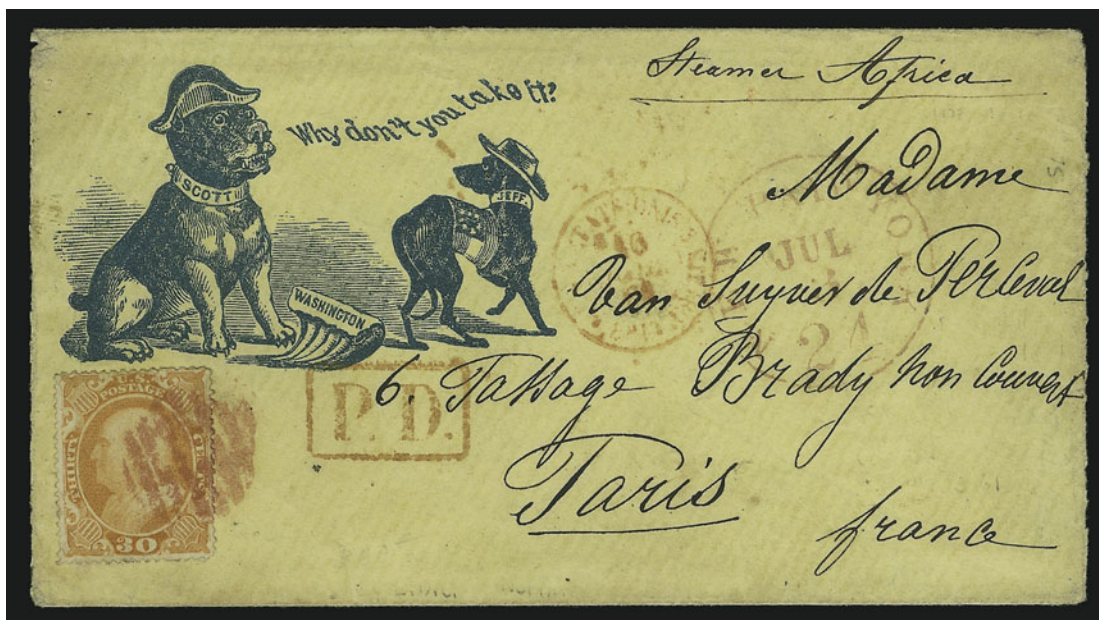 Steamer Africa
Why don't you take it?
SCOTT
JEFF.
WASHINGTON
Madame
Van Suyver de Perceval
6. Passage Brady non Couvert
Paris
france
JUL
24
P.D.
U.S.
POSTAGE
THIRTY
30